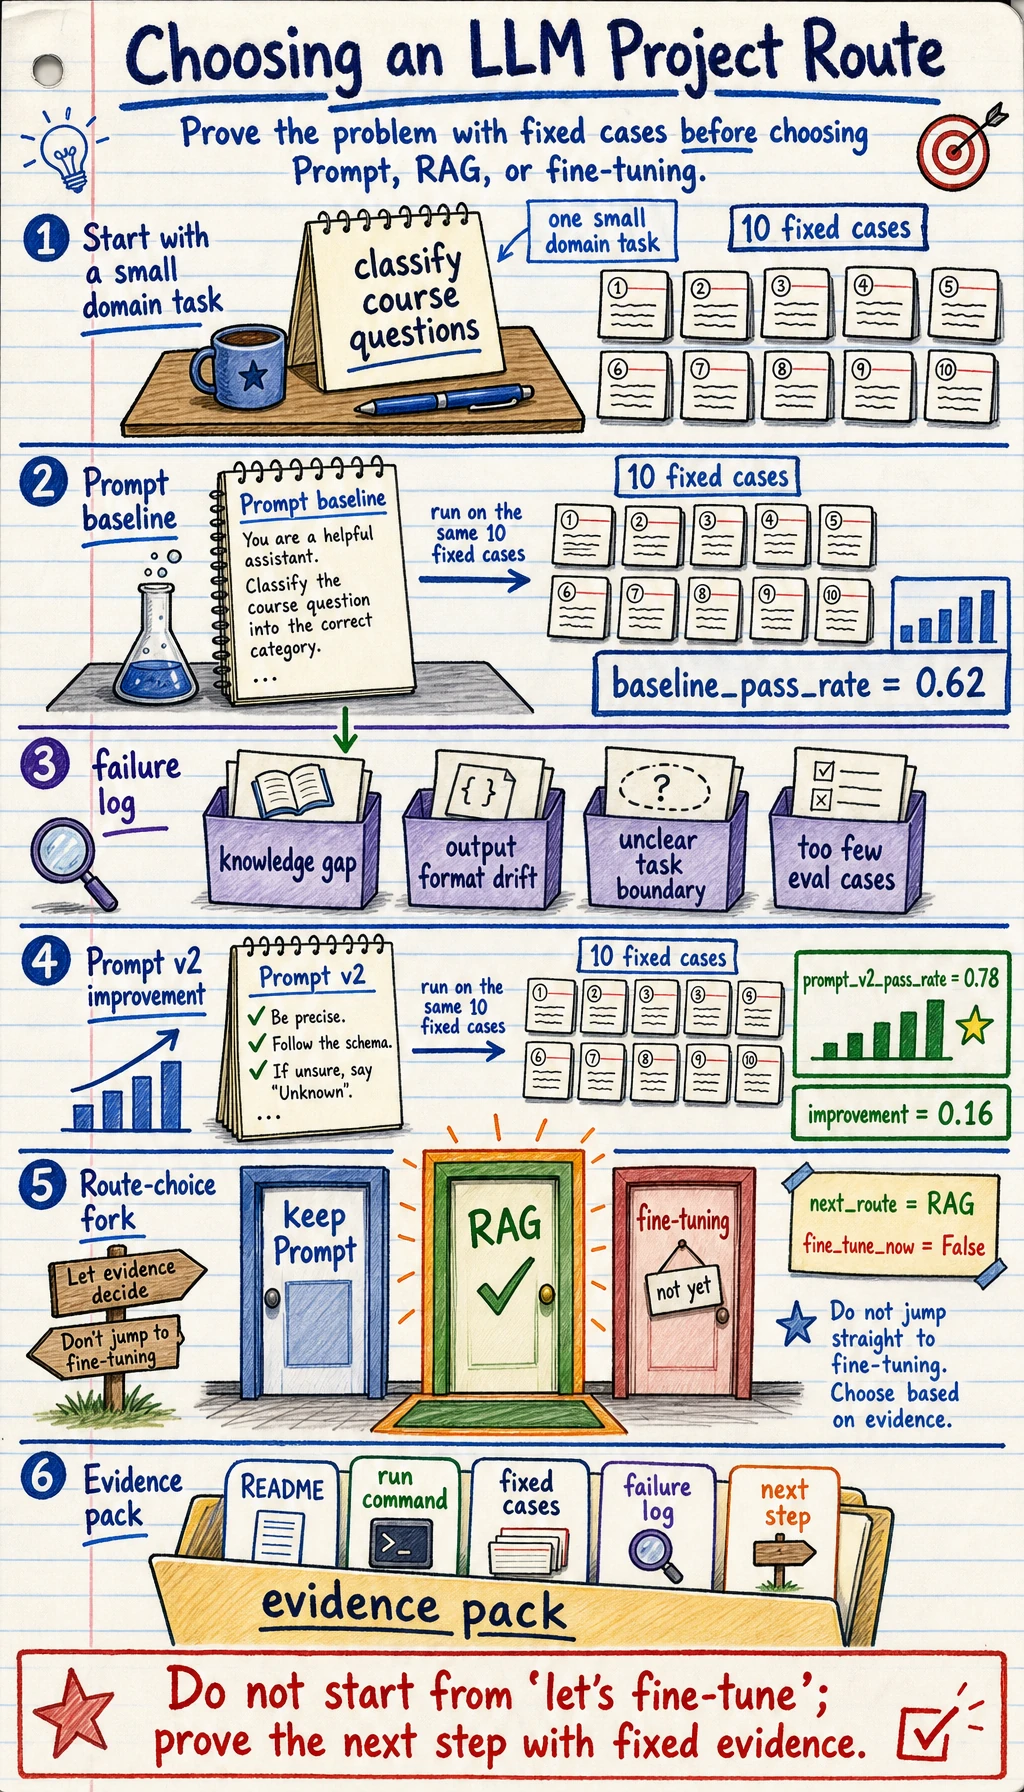 Choosing an LLM Project Route
Prove the problem with fixed cases before choosing
Prompt, RAG, or fine-tuning.
1
Start with
a small
domain task
classify
course
questions
one small
domain task
10 fixed cases
1
2
3
4
5
6
7
8
9
10
2
Prompt
baseline
Prompt baseline
You are a helpful
assistant.
Classify the
course question
into the correct
category.
...
run on the
same 10
fixed cases
10 fixed cases
1
2
3
4
5
6
7
8
9
10
baseline_pass_rate = 0.62
3
failure
log
knowledge gap
{ }
output
format drift
?
unclear
task
boundary
too few
eval cases
4
Prompt v2
improvement
Prompt v2
✓ Be precise.
✓ Follow the schema.
✓ If unsure, say
"Unknown".
...
run on the
same 10
fixed cases
10 fixed cases
1
2
3
3
5
6
7
8
9
10
prompt_v2_pass_rate = 0.78
improvement = 0.16
5
Route-choice
fork
Let evidence
decide
Don't jump to
fine-tuning
keep
Prompt
RAG
✓
fine-tuning
not yet
next_route = RAG
fine_tune_now = False
Do not jump
straight to
fine-tuning.
Choose based
on evidence.
6
Evidence
pack
README
run
command
>_
fixed
cases
failure
log
next
step
evidence pack
Do not start from 'let's fine-tune';
prove the next step with fixed evidence.